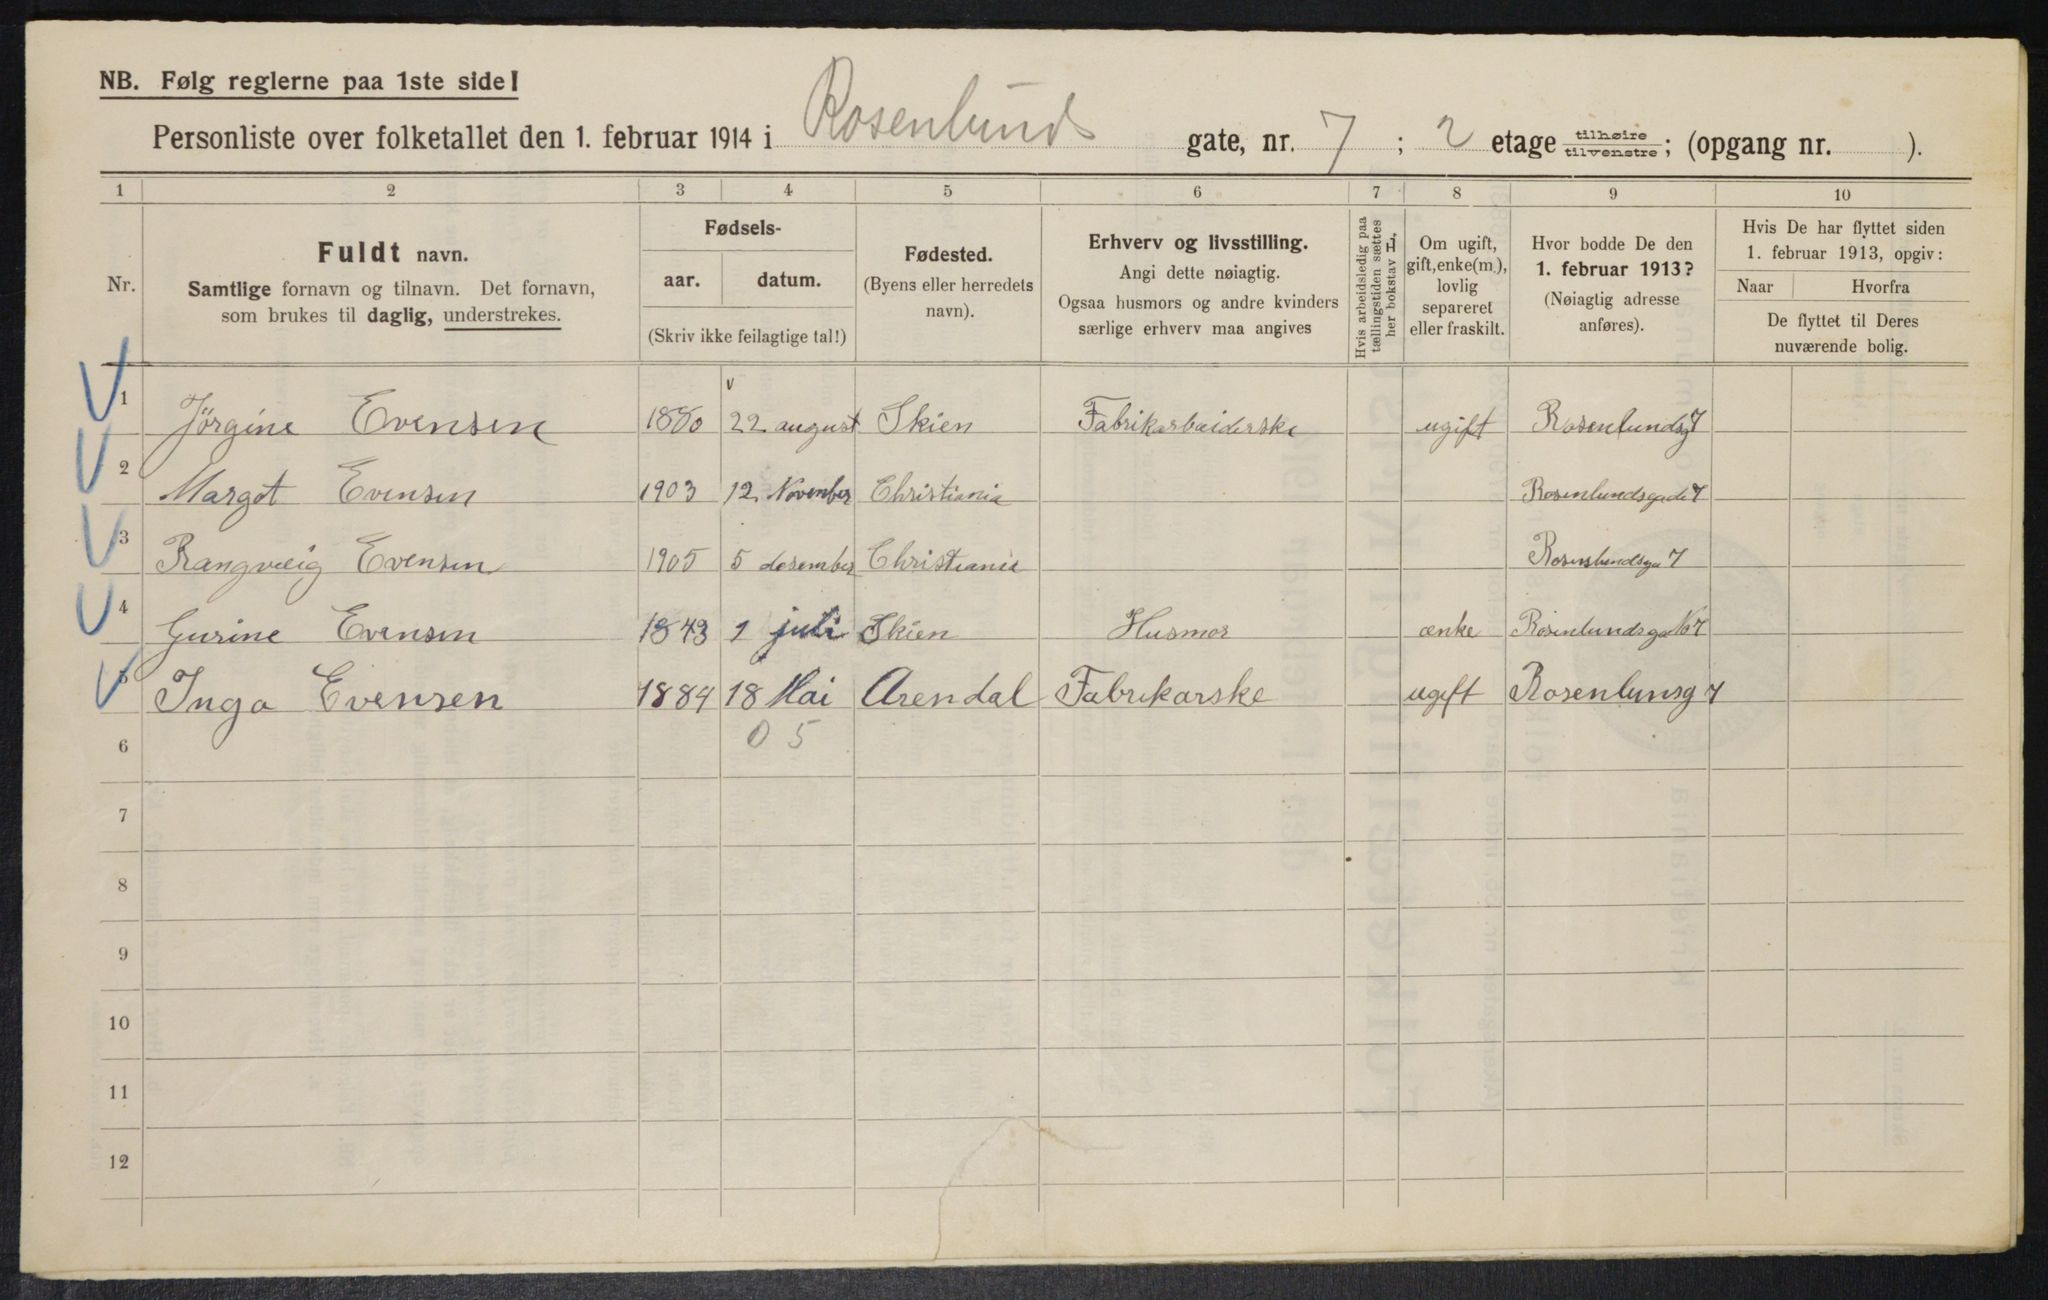 NB. Følg reglerne paa 1ste side!
Personliste over folketallet den 1. februar 1914 i Rosenlunds gate, nr. 7 ; 2 etage tilhøire tilvenstre ; (opgang nr. ).
1 2 3 4 5 6 7 8 9 10
Nr.
Fuldt navn.
Samtlige fornavn og tilnavn. Det fornavn,
som brukes til daglig, understrekes.
Fødsels-
aar. datum.
(Skriv ikke feilagtige tal!)
Fødested.
(Byens eller herredets
navn).
Erhverv og livsstilling.
Angi dette nøiagtig.
Ogsaa husmors og andre kvinders
særlige erhverv maa angives
Hvis arbeidsledig paa
tællingstiden sættes
her bokstav L.
Om ugift,
gift, enke(m.),
lovlig
separeret
eller fraskilt.
Hvor bodde De den
1. februar 1913?
(Nøiagtig adresse
anføres).
Hvis De har flyttet siden
1. februar 1913, opgiv:
Naar Hvorfra
De flyttet til Deres
nuværende bolig.
1 Jörgine Evensen 1880 22 august Skien Fabrikarbeiderske ugift Rosenlundsg 7
2 Margot Evensen 1903 12 November Christiania Rosenlundsgade 7
3 Rangveig Evensen 1905 5 desember Christiania Rosenlundsga 7
4 Gurine Evensen 1843 1 juli Skien Husmor ænke Rosenlundsga No 7
5 Inga Evensen 1884 18 Mai Arendal Fabrikarske ugift Rosenlunsg 7
0 5
6
7
8
9
10
11
12